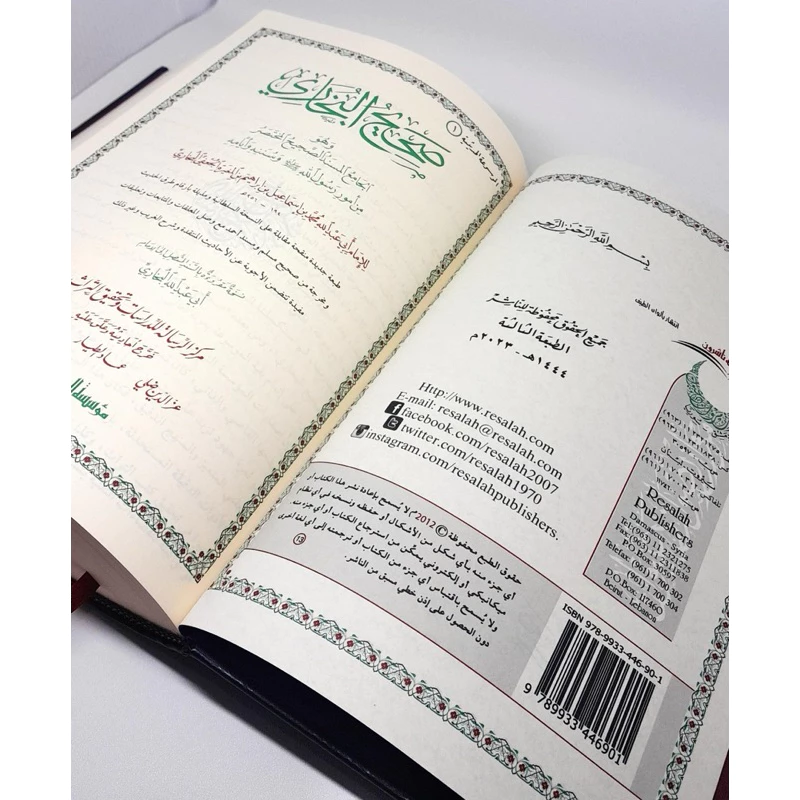 صحيح البخاري
وهو
الجامع المسند الصحيح المختصر
من أمور رسول الله ﷺ وسننه وأيامه
للإمام أبي عبد الله محمد بن إسماعيل بن إبراهيم بن المغيرة الجعفي البخاري
أبي عبد الله البخاري
مركز الرسالة للدراسات وتحقيق التراث
عز الدين ضلي
عماد الطيار
بسم الله الرحمن الرحيم
جميع الحقوق محفوظة للناشر
الطبعة الثالثة
١٤٤٤هـ - ٢٠٢٣م
Http://www.resalah.com
E-mail: resalah@resalah.com
facebook.com/resalah2007
twitter.com/resalah1970
instagram.com/resalahpublishers.
Resalah
Publishers
Damascus - Syria
Tel:(963) 11 2321275
Fax:(963) 11 2311838
P.O. Box: 30597
Telefax: (961) 1 700 302
(961) 1 700 304
P.O.Box: 117460
Beirut - Lebanon
حقوق الطبع محفوظة © 2012م لا يسمح بإعادة نشر هذا الكتاب أو
أي جزء منه بأي شكل من الأشكال أو حفظه ونسخه في أي نظام
ميكانيكي أو إلكتروني يمكّن من استرجاع الكتاب أو أي جزء منه
ولا يسمح باقتباس أي جزء من الكتاب أو ترجمته إلى أي لغة أخرى
دون الحصول على إذن خطي مسبق من الناشر.
ISBN 978-9933-446-90-1
9 789933 446901